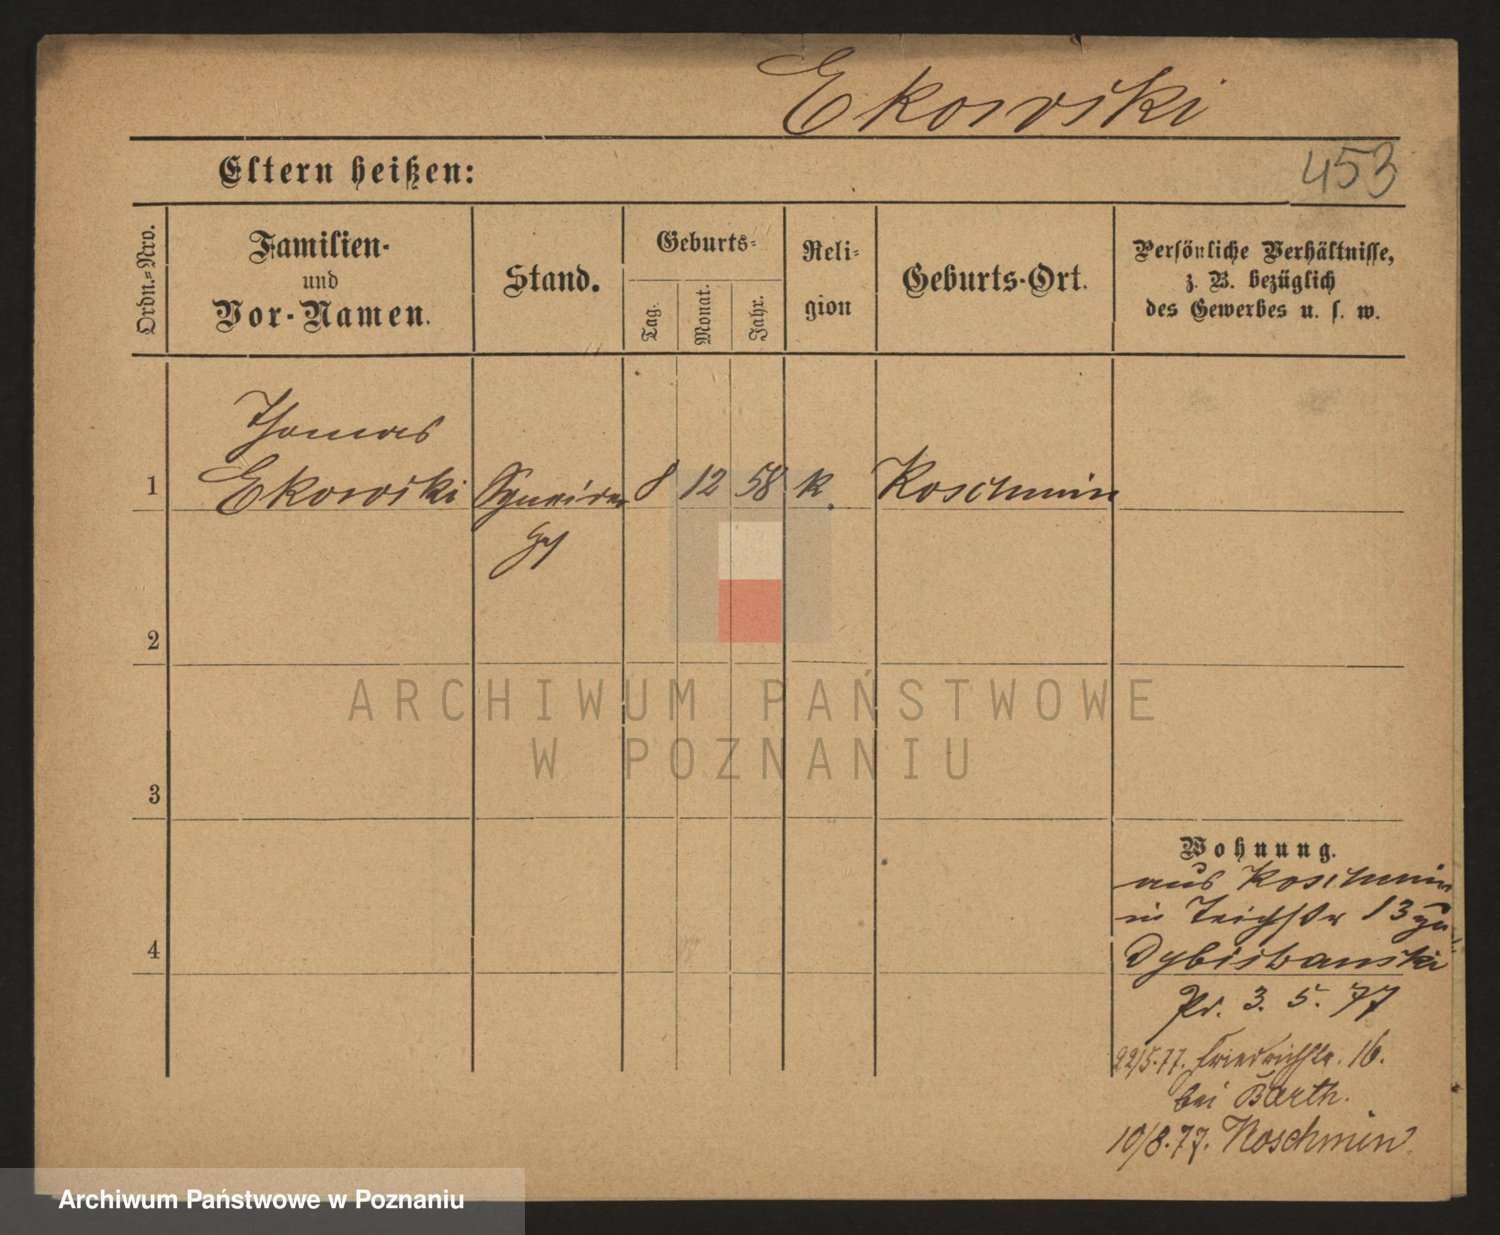 Ekowski
Eltern heißen:
453
Ordn.=Nro.
Familien-
und
Vor-Namen.
Stand.
Geburts=
Tag.
Monat.
Jahr.
Reli=
gion
Geburts-Ort.
Persönliche Verhältnisse,
z. B. bezüglich
des Gewerbes u. s. w.
Thomas
1 Ekowski Schneider 8 12 58 k Koschmin
2
3
4
Wohnung.
aus Koschmin
in Teichstr 13 zu
Dybiswanski
Pr. 3. 5. 77
22/5.77. Friedrichstr. 16.
bei Barth.
10/8.77. Koschmin
ARCHIWUM PAŃSTWOWE
W POZNANIU
Archiwum Państwowe w Poznaniu